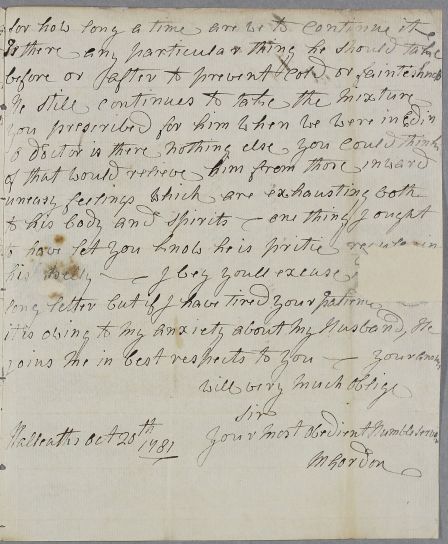 for how long a time are we to continue it
Is there any particular thing he should take
before or after to prevent cold or faintishness
He still continues to take the mixture
you prescribed for him when we were in Edin
o doctor is there nothing else you could think
of that would relieve him from those inward
uneasy feelings which are exhausting both
to his body and spirits — one thing I ought
to have let you know he is pritie regular in
his belly — I beg youll excuse
long letter but if I have tired your patience
it is owing to my anxiety about my Husband, He
joins me in best respects to you — your
will very much oblige
Sir
your most obedient Humble
Halleaths Oct 20th 1781
M Gordon